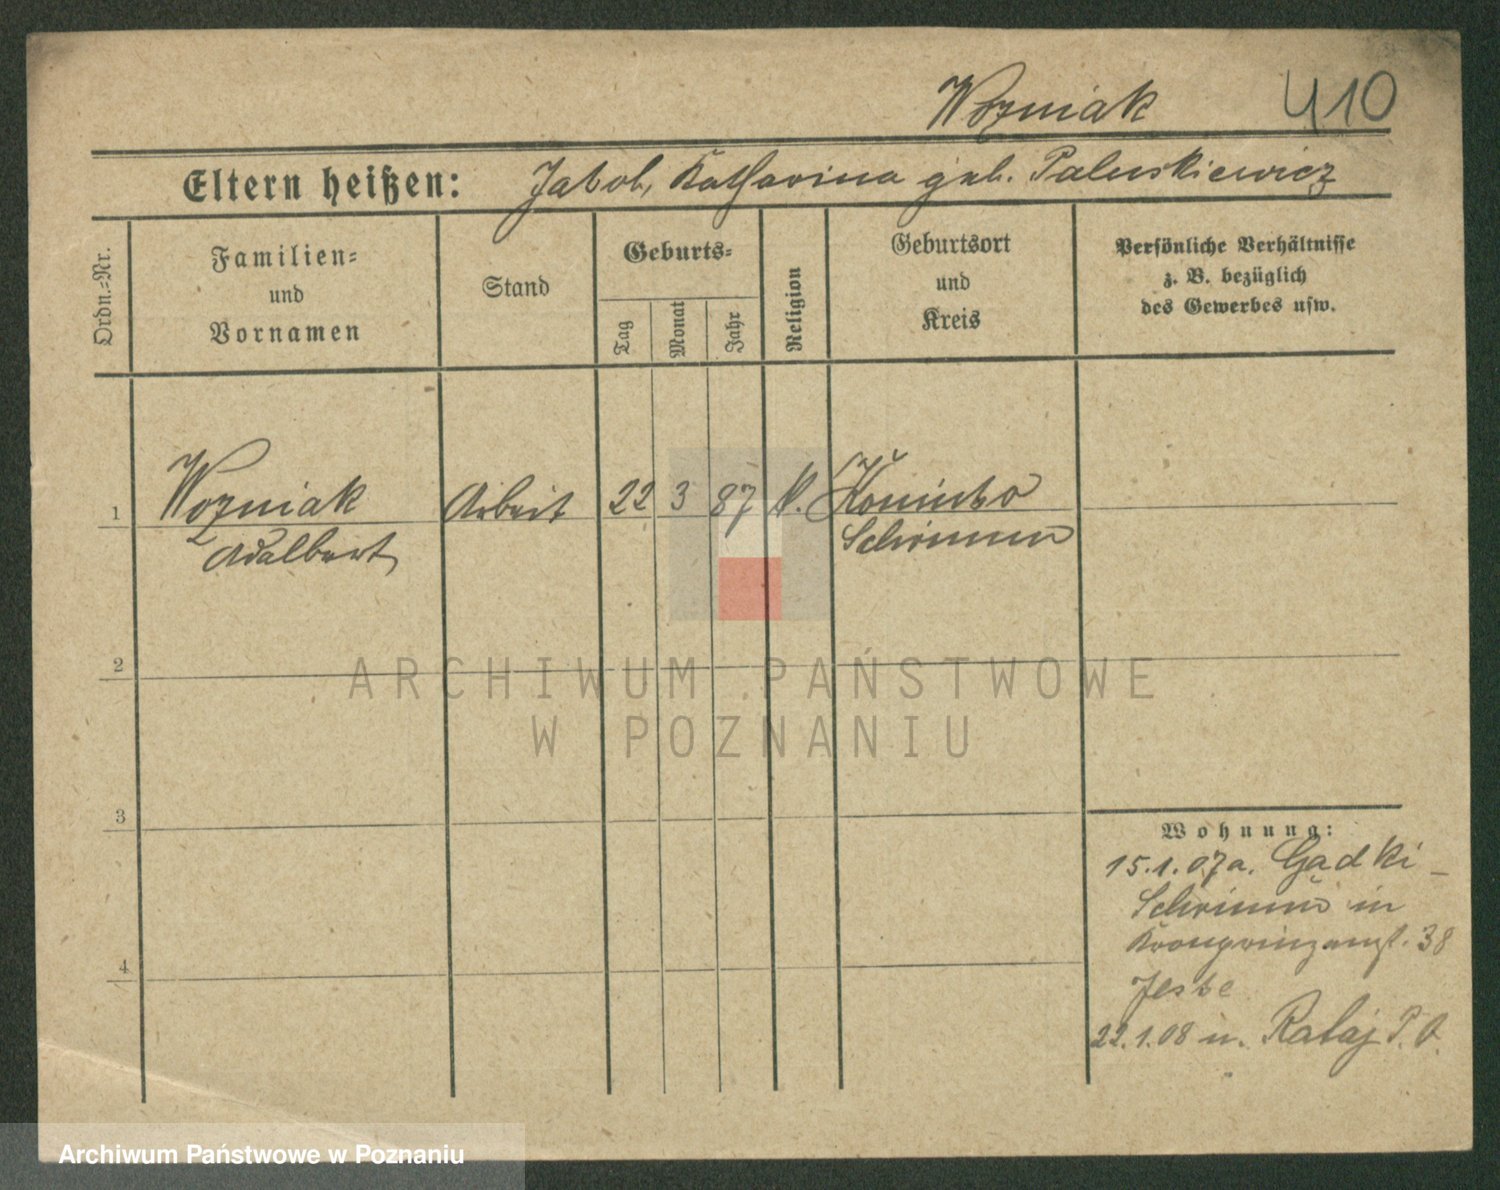 Wozniak 410
Eltern heißen: Jakob, Katharina geb. Paluskiewicz
Ordn.-Nr.
Familien-
und
Vornamen
Stand
Geburts-
Tag
Monat
Jahr
Religion
Geburtsort
und
Kreis
Persönliche Verhältnisse
z. B. bezüglich
des Gewerbes usw.
1 Wozniak Arbeit 22 3 87 k.
Adalbert Schrimm
2
3
4
Wohnung:
15.1.07 a. Gadki
Schrimm in
Kronprinzenst. 38
22.1.08 n. Rataj P. O.
ARCHIWUM PAŃSTWOWE
W POZNANIU
Archiwum Państwowe w Poznaniu